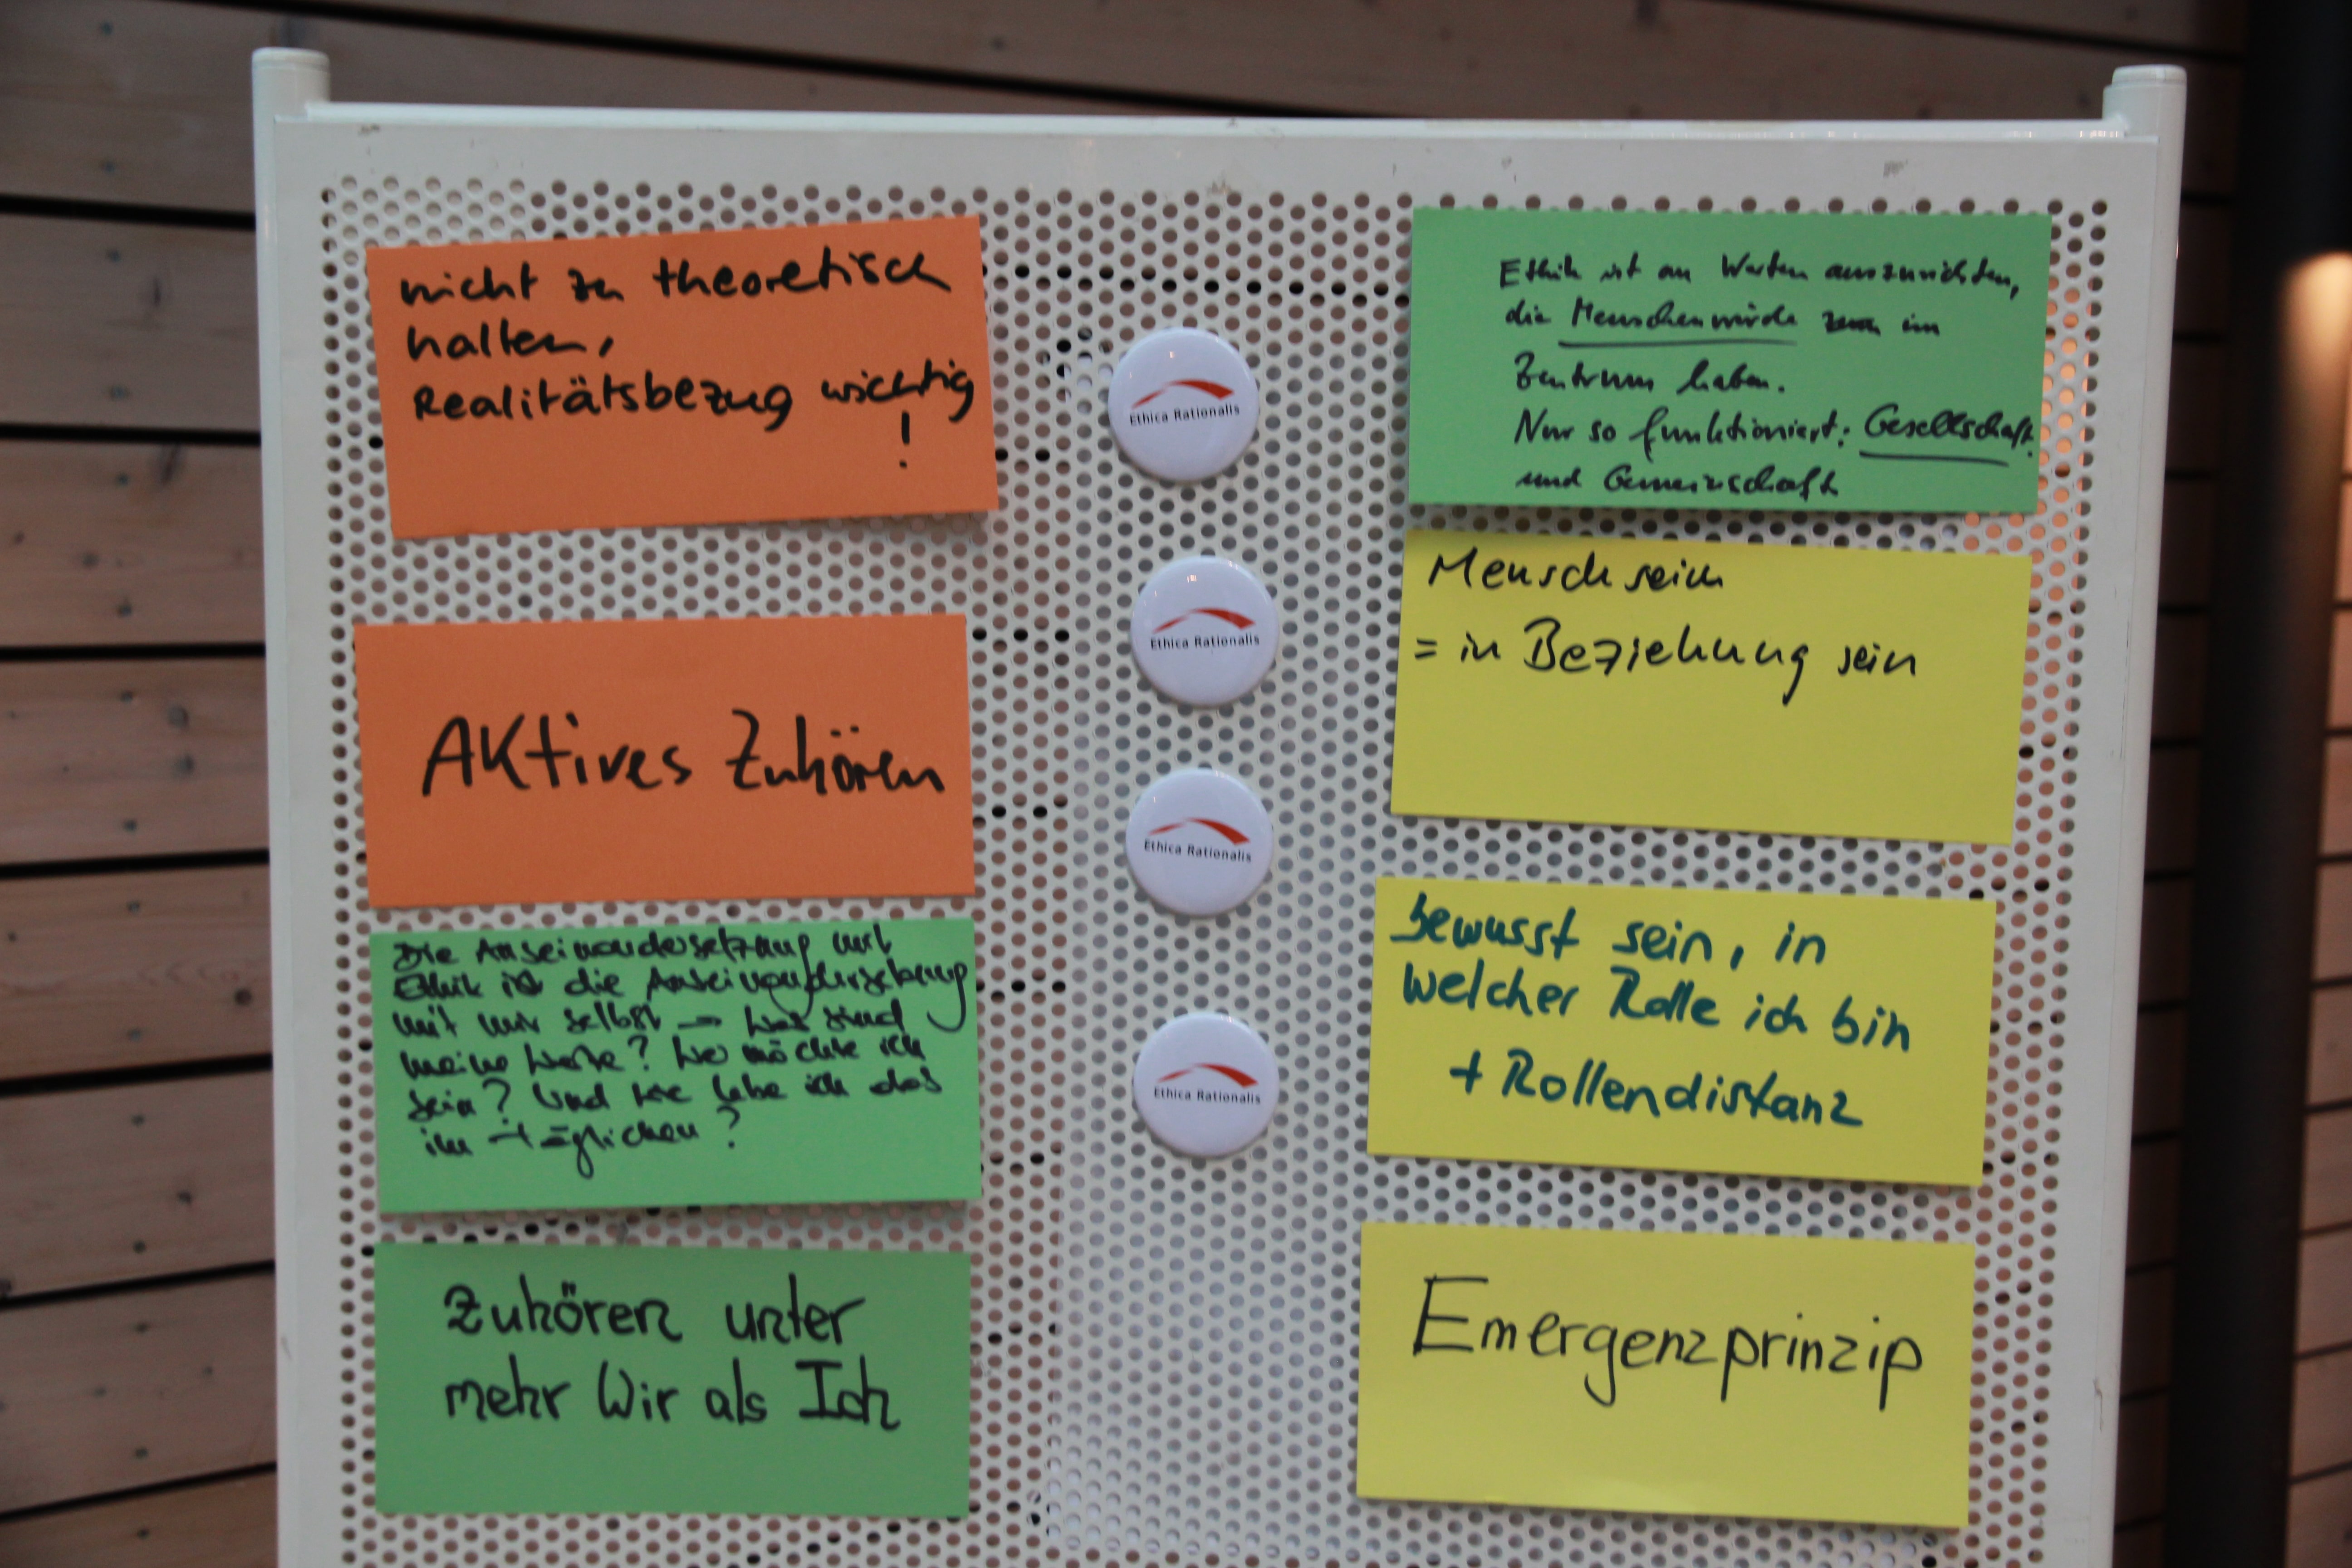 nicht zu theoretisch
halten,
Realitätsbezug wichtig
!
Aktives Zuhören
Die Auseinandersetzung mit
Ethik ist die Auseinandersetzung
mit mir selbst → Was sind
meine Werte? Wo möchte ich
sein? Und wie lebe ich das
im täglichen?
Zuhören unter
mehr Wir als Ich
Ethica Rationalis
Ethica Rationalis
Ethica Rationalis
Ethica Rationalis
Ethik ist an Werten auszurichten,
die Menschenwürde im
Zentrum haben.
Nur so funktioniert: Gesellschaft
und Gemeinschaft
Mensch sein
= in Beziehung sein
bewusst sein, in
welcher Rolle ich bin
+ Rollendistanz
Emergenzprinzip